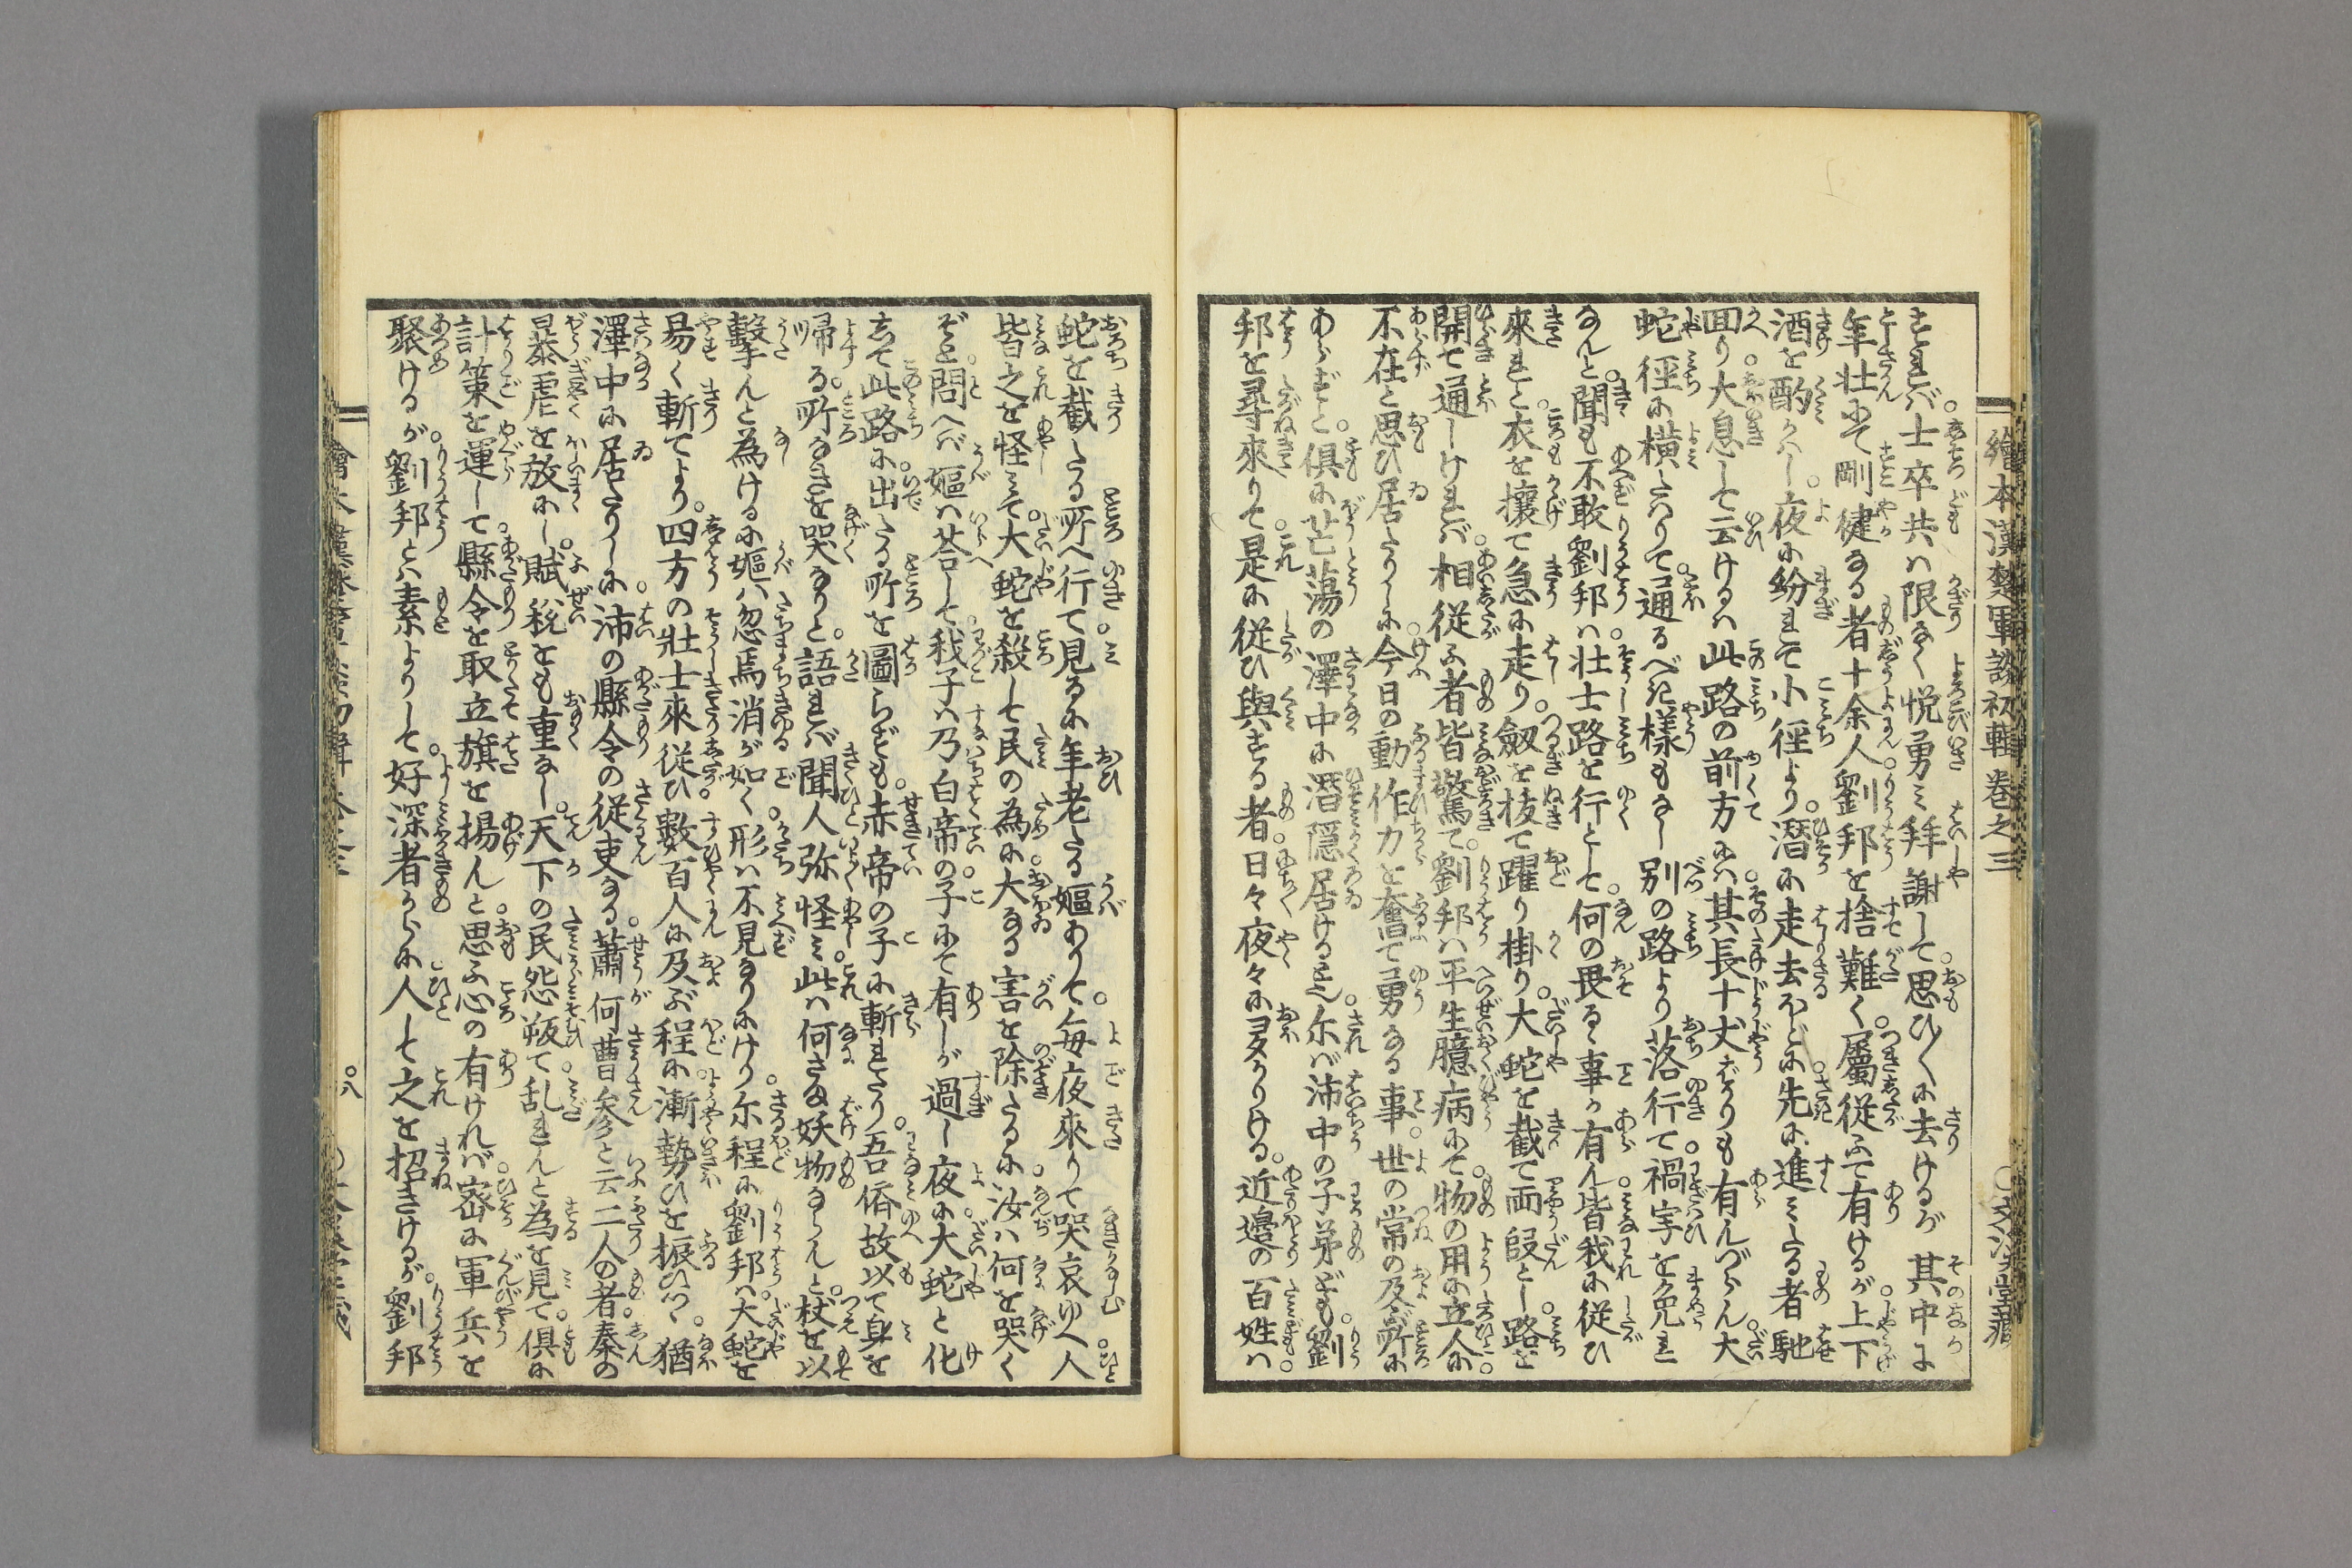 繪本漢楚軍談初輯 巻之三
○文溪堂藏
すれバ。士卒共ハ限なく悦勇ミ拜謝して。思ひ〳〵に去けるが其中に
年壮にて剛健なる者十余人。劉邦を捨難く。属従ふて有けるが。上下
酒を酌かハし。夜に紛れて小徑より。潜に走去ほどに。先に進ミたる者馳
回り。大息して云けるハ此路の前方にハ。其長十丈ばかりも有んづらん。大
蛇徑に横たハりて。通るべき様もなし別の路より落行て。禍害を免れ
なんと。聞も不敢劉邦ハ。壮士路を行とて。何の畏るゝ事か有ん。皆我に従ひ
來れと。衣を攘て急に走り。劔を抜て躍り掛り。大蛇を截て両段とし。路を
開て通しけれバ。相従ふ者皆驚て。劉邦ハ平生臆病にて。物の用に立人に。
不在と思ひ居たりしに。今日の動作力を奮て勇なる事。世の常の及ぶ所に
あらずと。倶に芒蕩の澤中に潜隠居ける。されバ沛中の子弟ども。劉
邦を尋來りて。是に従ひ與する者。日々夜々に多かりける。近邊の百姓ハ。
蛇を截たる所へ行て。見るに年老たる嫗ありて。毎夜來りて哭哀ゆへ。人
皆之を怪ミて。大蛇を殺して民の為に。大なる害を除たるに。汝ハ何を哭く
ぞと。問へバ嫗ハ荅して。我子ハ乃白帝の。子にて有しが過し夜に。大蛇と化
して此路に。出たる所を圖らずも。赤帝の子に斬れたり。吾儕故以て身を
帰る。所なきを哭なりと。語れバ聞人弥怪ミ。此ハ何さま妖物ならんと。杖を以
撃んと為けるに嫗ハ忽焉消が如く。形ハ不見なりにけり。尓程に劉邦ハ。大蛇を
易く斬てより。四方の壮士來従ひ。數百人に及ぶ程に。漸勢ひを振ひつゝ。猶
澤中に居たりしに。沛の縣令の従吏なる。蕭何曹參と云二人の者。秦の
暴虐を放にし。賦税をも重なし。天下の民怨叛て。乱れんと為を見て。倶に
計策を運して。縣令を取立旗を揚んと。思ふ心の有けれバ。密に軍兵を
聚けるが。劉邦とハ素よりして。好深者からに。人して之を招きけるが。劉邦
八